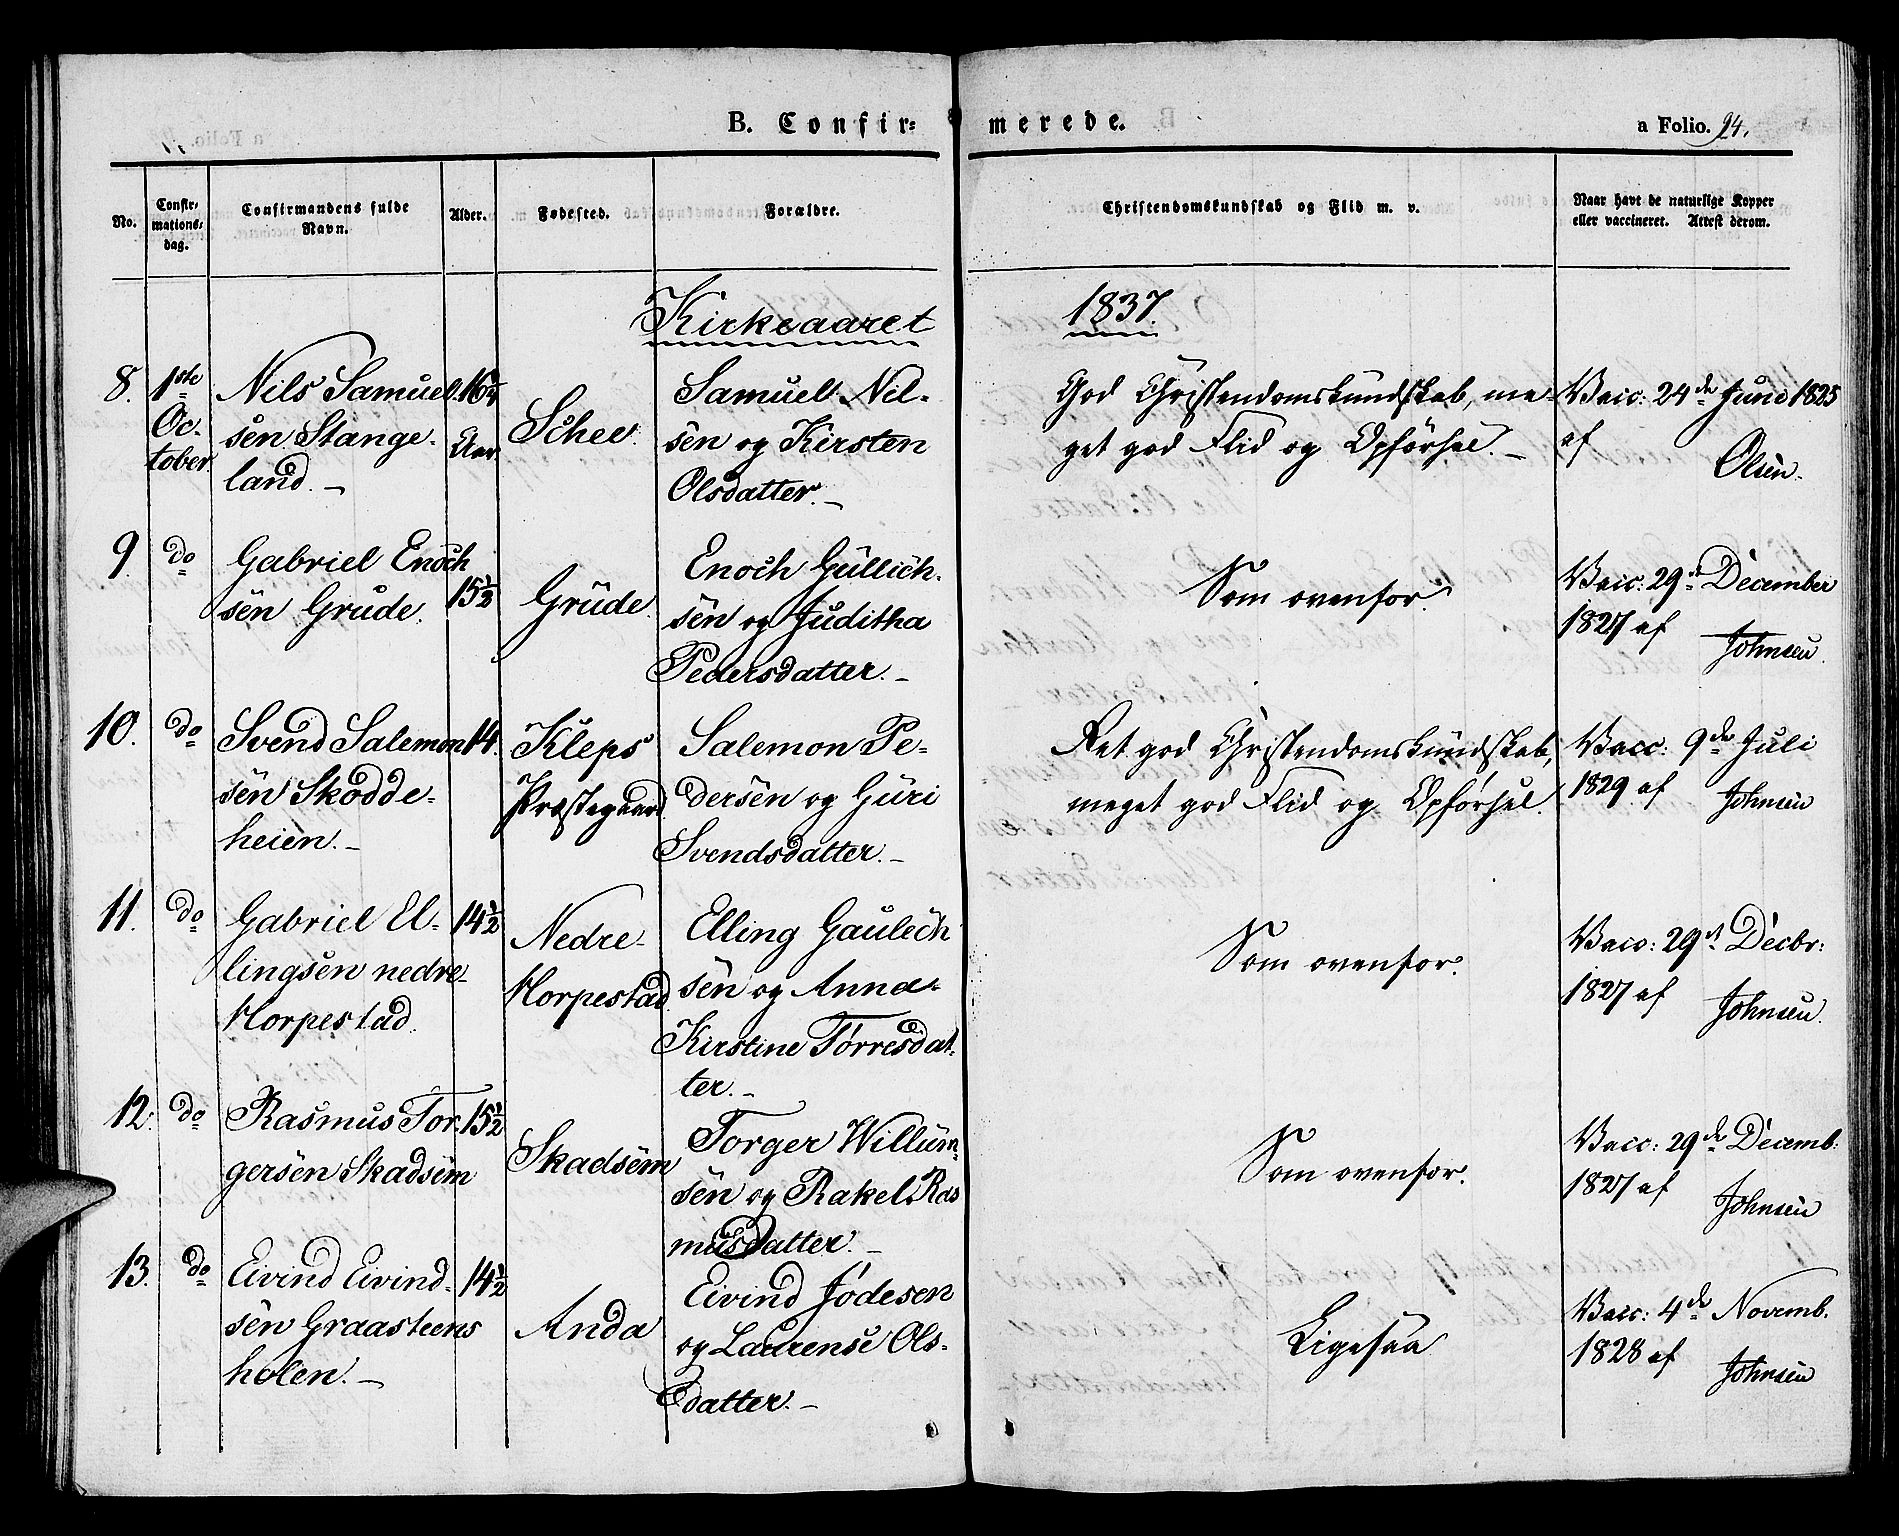 B. Confir- merede.
a Folio. 94.
No.
Confir-
mations-
dag.
Confirmandens fulde
Navn.
Alder.
Fødested.
Forældre.
Christendomskundskab og Flid m. v.
Naar havt de naturlige Kopper
eller vaccineret. Attest derom.
Kirkeaaret 1837.
8. 1ste
Oc-
tober.
Nils Samuel-
sen Stange-
land. -
Aar.
Schee.
Samuel Nil-
sen og Kirsten
Olsdatter. -
God Christendomskundskab, me-
get god Flid og Opførsel. -
Vacc: 24de Juni 1825
af
Olsen.
9. do
Gabriel Enoch
sen Grude.
15 1/2
Grude.
Enoch Gullich-
sen og Juditha
Pedersdatter. -
Som ovenfor.
Vacc: 29de December
1827 af
Johnsen.
10. do
Svend Salemon
sen Skodde-
heien. -
14.
Kleps
Præstegaard
Salemon Pe-
dersen og Guri
Svendsdatter. -
Ret god Christendomskundskab,
meget god Flid og Opførsel.
Vacc: 9de Juli
1829 af
Johnsen
11. do
Gabriel El-
lingsen nedre-
Horpestad.
14 1/2
Nedre-
Horpestad.
Elling Gaulich
sen og Anna-
Kirstine Tørresdat-
ter. -
Som ovenfor.
Vacc: 29de Decbr:
1827 af
Johnsen.
12. do
Rasmus Tor-
gersen Skadsem
15 1/2
Skadsem
Torger Willum-
sen og Rakel Ras
musdatter. -
Som ovenfor.
Vacc: 29de Decemb:
1827 af
Johnsen
13. do
Eivind Eivind-
sen Graasteens
holen. -
14 1/2
Anda
Eivind Jødesen
og Laurense Ols-
datter. -
Ligesaa
Vacc: 4de Novemb.
1828 af
Johnsen